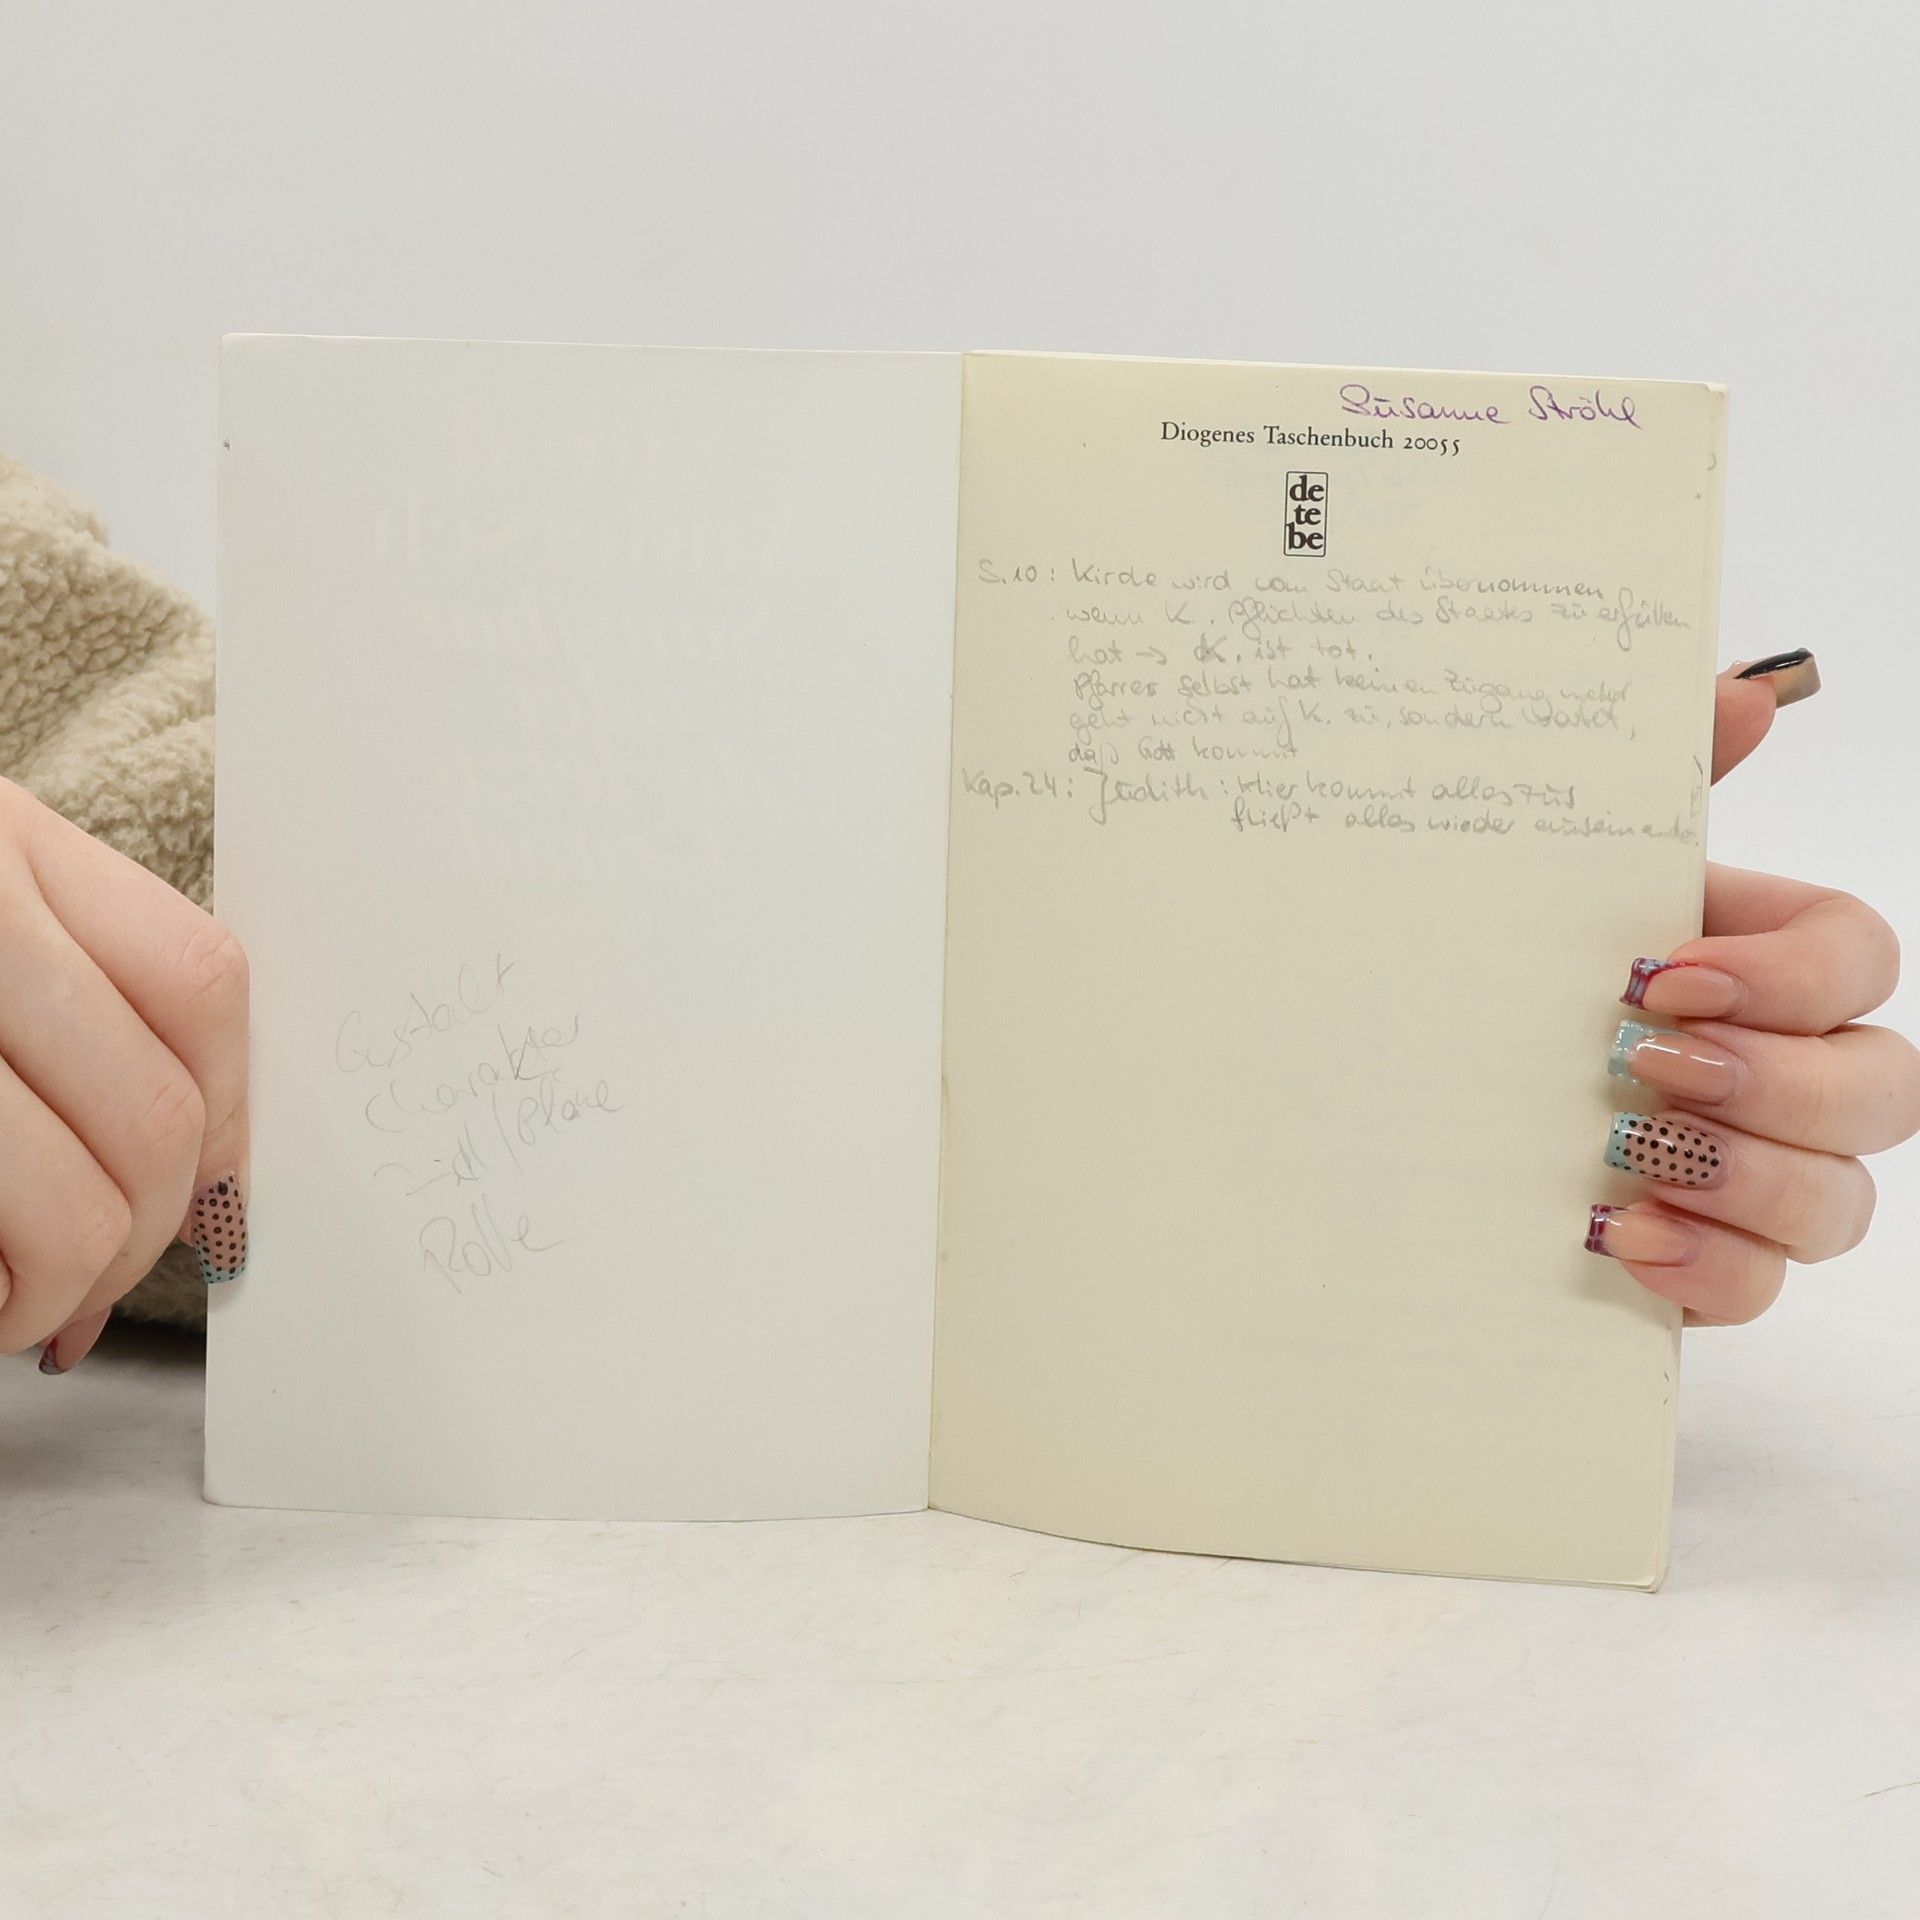 Gestalt
Charakter
Ziel / Pläne
Rolle
Susanne Ströhl
Diogenes Taschenbuch 20055
de
te
be
S. 10: Kirche wird vom Staat übernommen
wenn K. Pflichten des Staates zu erfüllen
hat → K. ist tot.
Pfarrer selbst hat keinen Zugang mehr
geht nicht auf K. zu, sondern wartet,
daß Gott kommt
Kap. 24: Judith: Hier kommt alles zus
fließt alles wieder auseinander